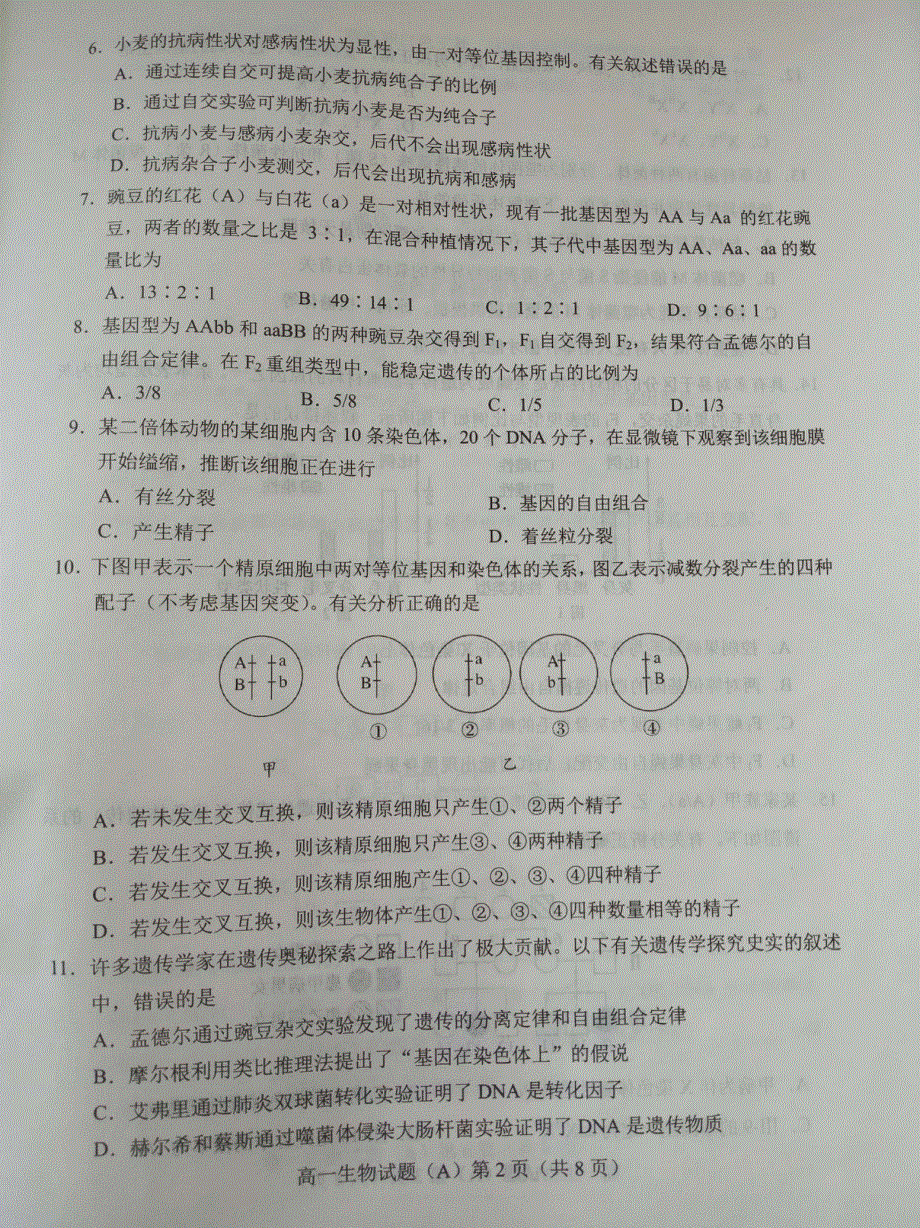 6．小麦的抗病性状对感病性状为显性，由一对等位基因控制。有关叙述错误的是
A．通过连续自交可提高小麦抗病纯合子的比例
B．通过自交实验可判断抗病小麦是否为纯合子
C．抗病小麦与感病小麦杂交，后代不会出现感病性状
D．抗病杂合子小麦测交，后代会出现抗病和感病
7．豌豆的红花（A）与白花（a）是一对相对性状，现有一批基因型为 AA 与 Aa 的红花豌
豆，两者的数量之比是 3∶1，在混合种植情况下，其子代中基因型为 AA、Aa、aa 的数
量比为
A．13∶2∶1 B．49∶14∶1 C．1∶2∶1 D．9∶6∶1
8．基因型为 AAbb 和 aaBB 的两种豌豆杂交得到 F₁，F₁自交得到 F₂，结果符合孟德尔的自
由组合定律。在 F₂ 重组类型中，能稳定遗传的个体所占的比例为
A．3/8 B．5/8 C．1/5 D．1/3
9．某二倍体动物的某细胞内含 10 条染色体，20 个 DNA 分子，在显微镜下观察到该细胞膜
开始缢缩，推断该细胞正在进行
A．有丝分裂 B．基因的自由组合
C．产生精子 D．着丝粒分裂
10．下图甲表示一个精原细胞中两对等位基因和染色体的关系，图乙表示减数分裂产生的四种
配子（不考虑基因突变）。有关分析正确的是
A a A a A a
B b B b b B
① ② ③ ④
甲 乙
A．若未发生交叉互换，则该精原细胞只产生①、②两个精子
B．若发生交叉互换，则该精原细胞只产生③、④两种精子
C．若发生交叉互换，则该精原细胞产生①、②、③、④四种精子
D．若发生交叉互换，则该生物体产生①、②、③、④四种数量相等的精子
11．许多遗传学家在遗传奥秘探索之路上作出了极大贡献。以下有关遗传学探究史实的叙述
中，错误的是
A．孟德尔通过豌豆杂交实验发现了遗传的分离定律和自由组合定律
B．摩尔根利用类比推理法提出了“基因在染色体上”的假说
C．艾弗里通过肺炎双球菌转化实验证明了 DNA 是转化因子
D．赫尔希和蔡斯通过噬菌体侵染大肠杆菌实验证明了 DNA 是遗传物质
高一生物试题（A）第 2 页（共 8 页）